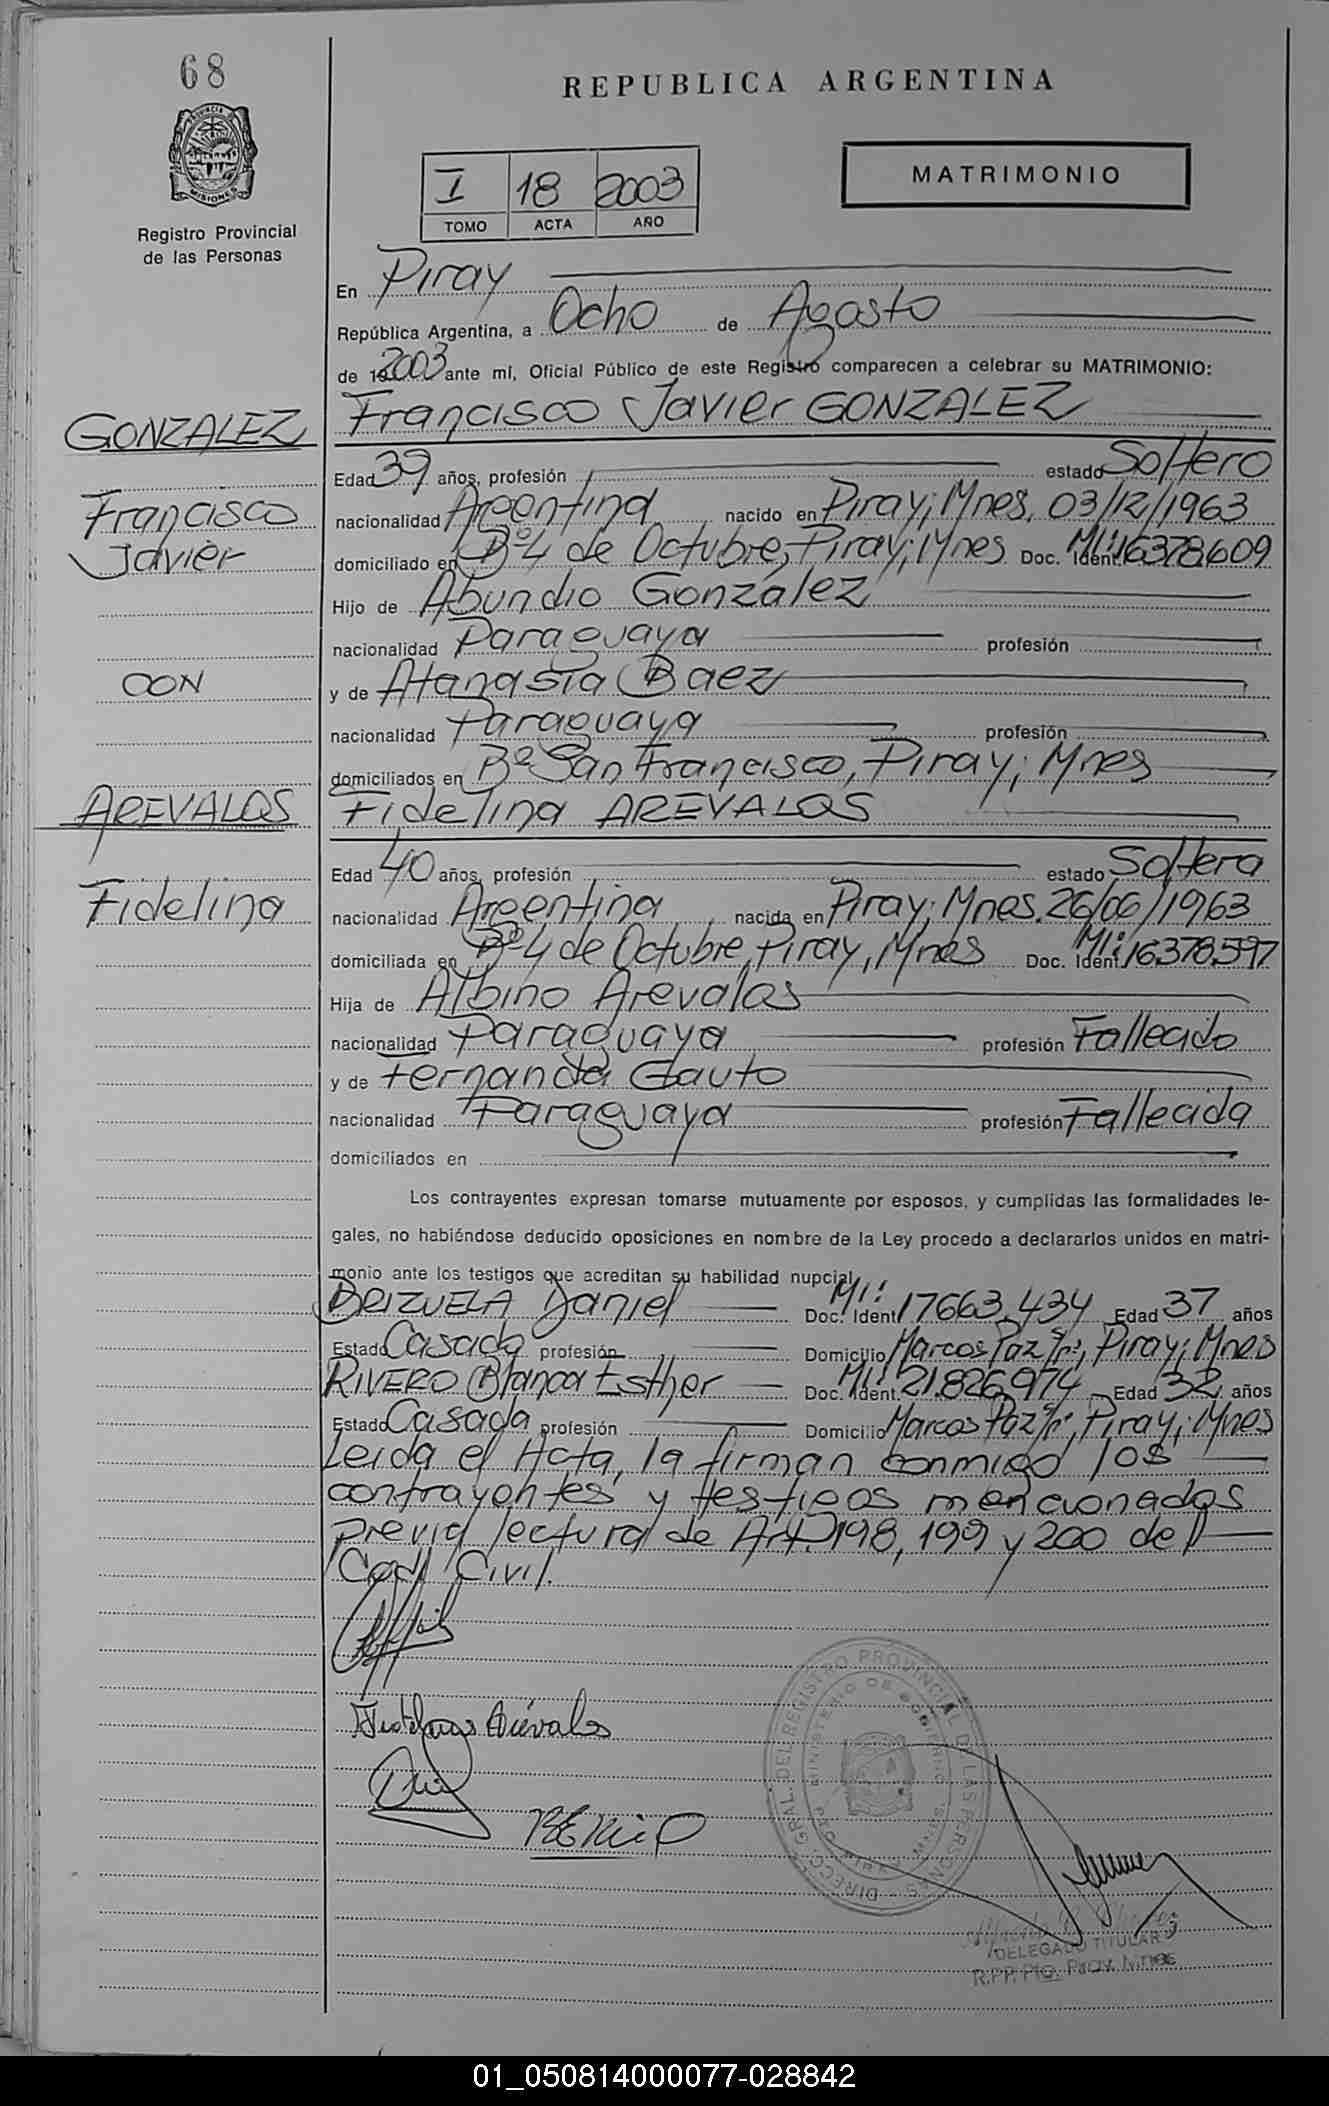 68
REPUBLICA ARGENTINA
MATRIMONIO
I 18 2003
TOMO ACTA AÑO
PROVINCIA DE
MISIONES
Registro Provincial
de las Personas
En Piray
República Argentina, a Ocho de Agosto
de 2003 ante mí, Oficial Público de este Registro comparecen a celebrar su MATRIMONIO:
GONZALEZ
Francisco
Javier
CON
AREVALOS
Fidelina
Francisco Javier GONZALEZ
Edad 39 años, profesión estado Soltero
nacionalidad Argentina nacido en Piray, Mnes, 03/12/1963
domiciliado en Bº 4 de Octubre, Piray, Mnes Doc. Ident. MI: 16.378.609
Hijo de Abundio González
nacionalidad Paraguaya profesión
y de Atanasia Baez
nacionalidad Paraguaya profesión
domiciliados en Bº San Francisco, Piray, Mnes
Fidelina AREVALOS
Edad 40 años, profesión estado Soltera
nacionalidad Argentina nacida en Piray, Mnes. 26/06/1963
domiciliada en Bº 4 de Octubre, Piray, Mnes Doc. Ident. MI: 16.378.597
Hija de Albino Arevalos
nacionalidad Paraguaya profesión Fallecido
y de Fernanda Gauto
nacionalidad Paraguaya profesión Fallecida
domiciliados en
Los contrayentes expresan tomarse mutuamente por esposos, y cumplidas las formalidades le-
gales, no habiéndose deducido oposiciones en nombre de la Ley procedo a declararlos unidos en matri-
monio ante los testigos que acreditan su habilidad nupcial
BRIZUELA Daniel Doc. Ident MI: 17663.434 Edad 37 años
Estado Casado profesión Domicilio Marcos Paz s/nº, Piray, Mnes
RIVERO Blanca Esther Doc. Ident. MI: 21.826.974 Edad 32 años
Estado Casada profesión Domicilio Marcos Paz s/nº, Piray, Mnes
Leida el Acta, la firman conmigo los
contrayentes y testigos mencionados
previa lectura de Art. 198, 199 y 200 del
Cod. Civil.
Arévalos
DIRECC. GRAL. DEL REGISTRO PROVINCIAL DE LAS PERSONAS
MINISTERIO DE GOBIERNO
DELEGADO TITULAR
R.P.P. Pto. Piray Mnes
01_050814000077-028842